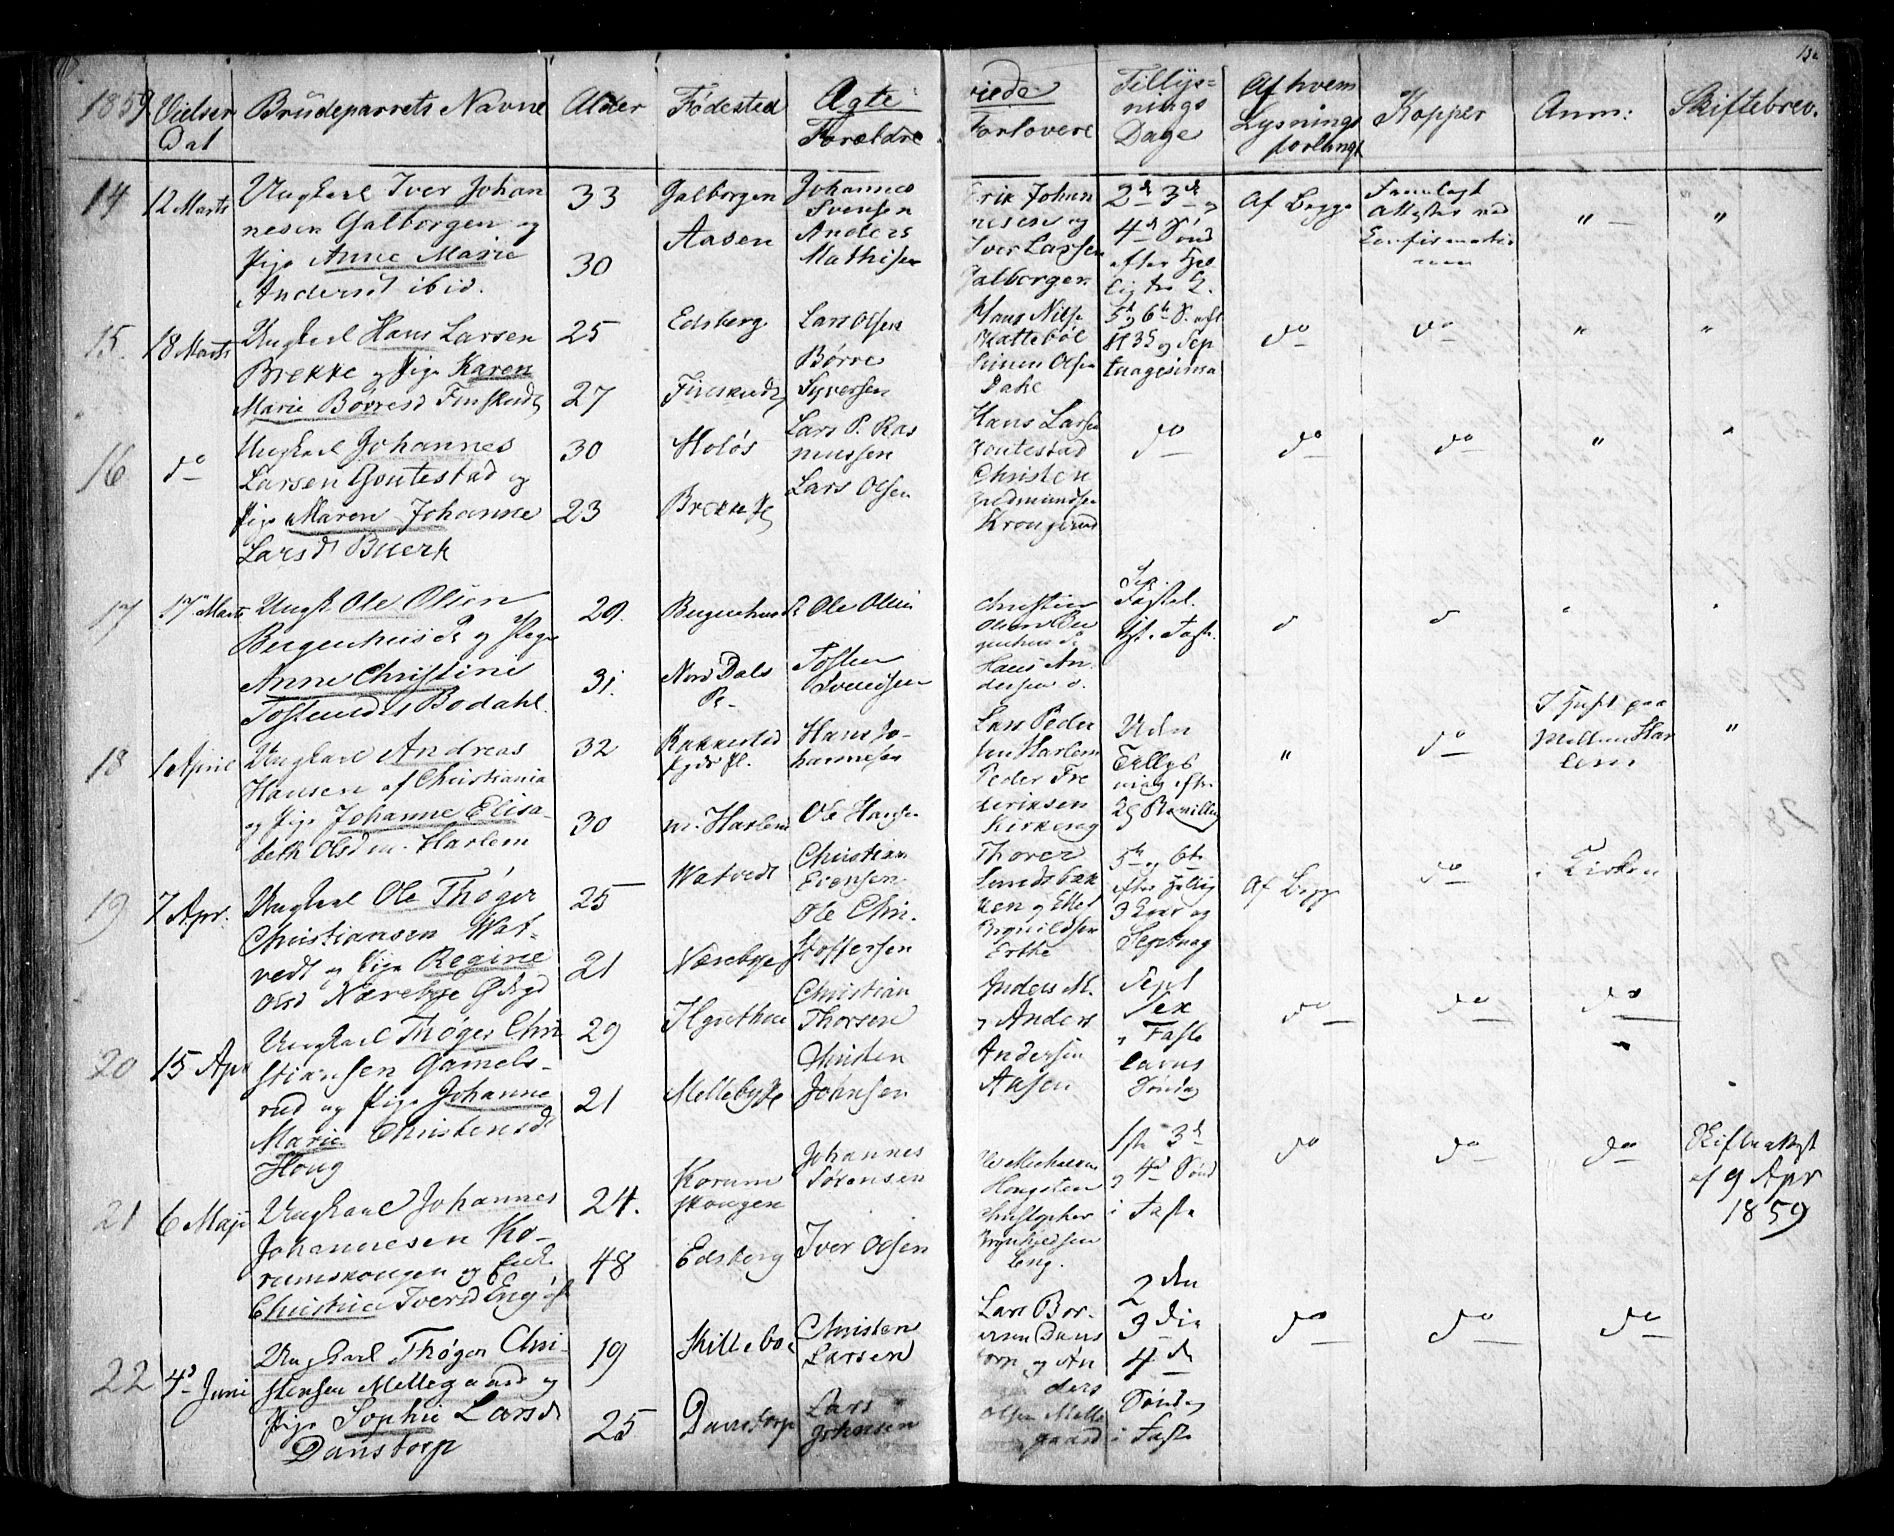 1859. Vielses Dat
Brudeparrets Navne
Alder
Fødested
Ægte
Forældre
viede
Forlovere
Tillys=
nings
Dage
Af hvem
Lysning
forlangt
Kopper
Anm:
Skiftebrev.
14
12 Marts
Ungkarl Iver Johan
nesen Galborgen og
Pige Anne Marie
Andersd ibid.
33
30
Galborgen
Aasen
Johannes
Svensen
Anders
Mathisen
Erik Johan
nesen og
Iver Larsen
Galborgen
2d 3d og
4d Sønd
efter Hel
lig tre K.
Af Begge
"
"
15.
18 Marts
Ungkarl Hans Larsen
Brekke og Pige Karen
Marie Børresd Finskud
25
27
Edsberg
Lars Olsen
Børre
Syversen
Hans Nilse
Simen Olsen
5t og 6te S. eft
H 3K og Sep
tuagesima
do
do
"
"
16
do
Ungkarl Johannes
Larsen Gontestad og
Pige Maren Johanne
Larsd Buerk
30
23
Lars P. Ras
mussen
Lars Olsen
Hans Larsen
Gontestad
Christen
Gudmundsen
Krongerud
do
do
do
"
17
17 Marts
Ungk. Ole Olsen
Bergenhus og Pige
Anne Christine
Tostensdt Bodahl.
29.
31.
Bergenhus
Nord Dals
Pr.
Ole Olsen
Tosten
Svendsen
Christian
Olsen Ber
genhus
Hans An
dersen
Sex.
Fastel.
1st. Faste.
18
1 April
Ungkarl Andreas
Hansen af Christiania
og Pige Johanne Elisa-
beth Olsd m. Harlem
32
30
Rakkestad
m. Harlem
Hans Jo-
hannesen
Ole Hansen
Lars Peder
sen Harlem
Peder Fre
deriksen
Kirkeng
Uden
Tillys
ning efter
Bevilling
"
do
Mellem Har
lem
"
19
7 Apr.
Ungkarl Ole Thøger
Christiansen Wat-
vedt og Pige Regine
Olsd Nærebye
25
21
Watvedt
Nærebye
Christian
Evensen
Ole Chri-
stoffersen
Thorer
Lundsbak
ken og Eller
Brynildsen
Erthe
5te og 6te
efter Hellig
3 Kongr og
Septuag
Af Begge
do
i Kirken
20
15 Apr
Ungkarl Thøger Chri
stiansen Gamels-
rud og Pige Johanne
Marie Christensd
Houg
29
21
Mellebye
Christian
Thorsen
Christen
Johnsen
Anders A.
og Anders
Andersen
Aasen
Sept
Sex
og Faste
lavns
Søndag
do
do
do
21
6 Maj
Ungkarl Johannes
Johannesen Ko-
rumskougen og Enke
Christina Iversd Eng
24.
48
Korum
skougen
Edsberg
Johannes
Sørensen
Iver Olsen
Christopher
Brynhildsen
Eng.
1ste 3d
og 4d Sønd
i Faste
do
do
do
Skifteattest
af 9 Apr
1859
22
4d Juni
Ungkarl Thøger Chri-
stensen Mellegaard og
Pige Sophie Larsd
Danstorp
19
25
Skillebo
Danstorp
Christen
Larsen
Lars
Johnsen
Lars Bor-
ersen Dans
torp og An
ders
Olsen Melle
gaard
2 den
3 die
4 de
Søndag
i Faste
do
do
do